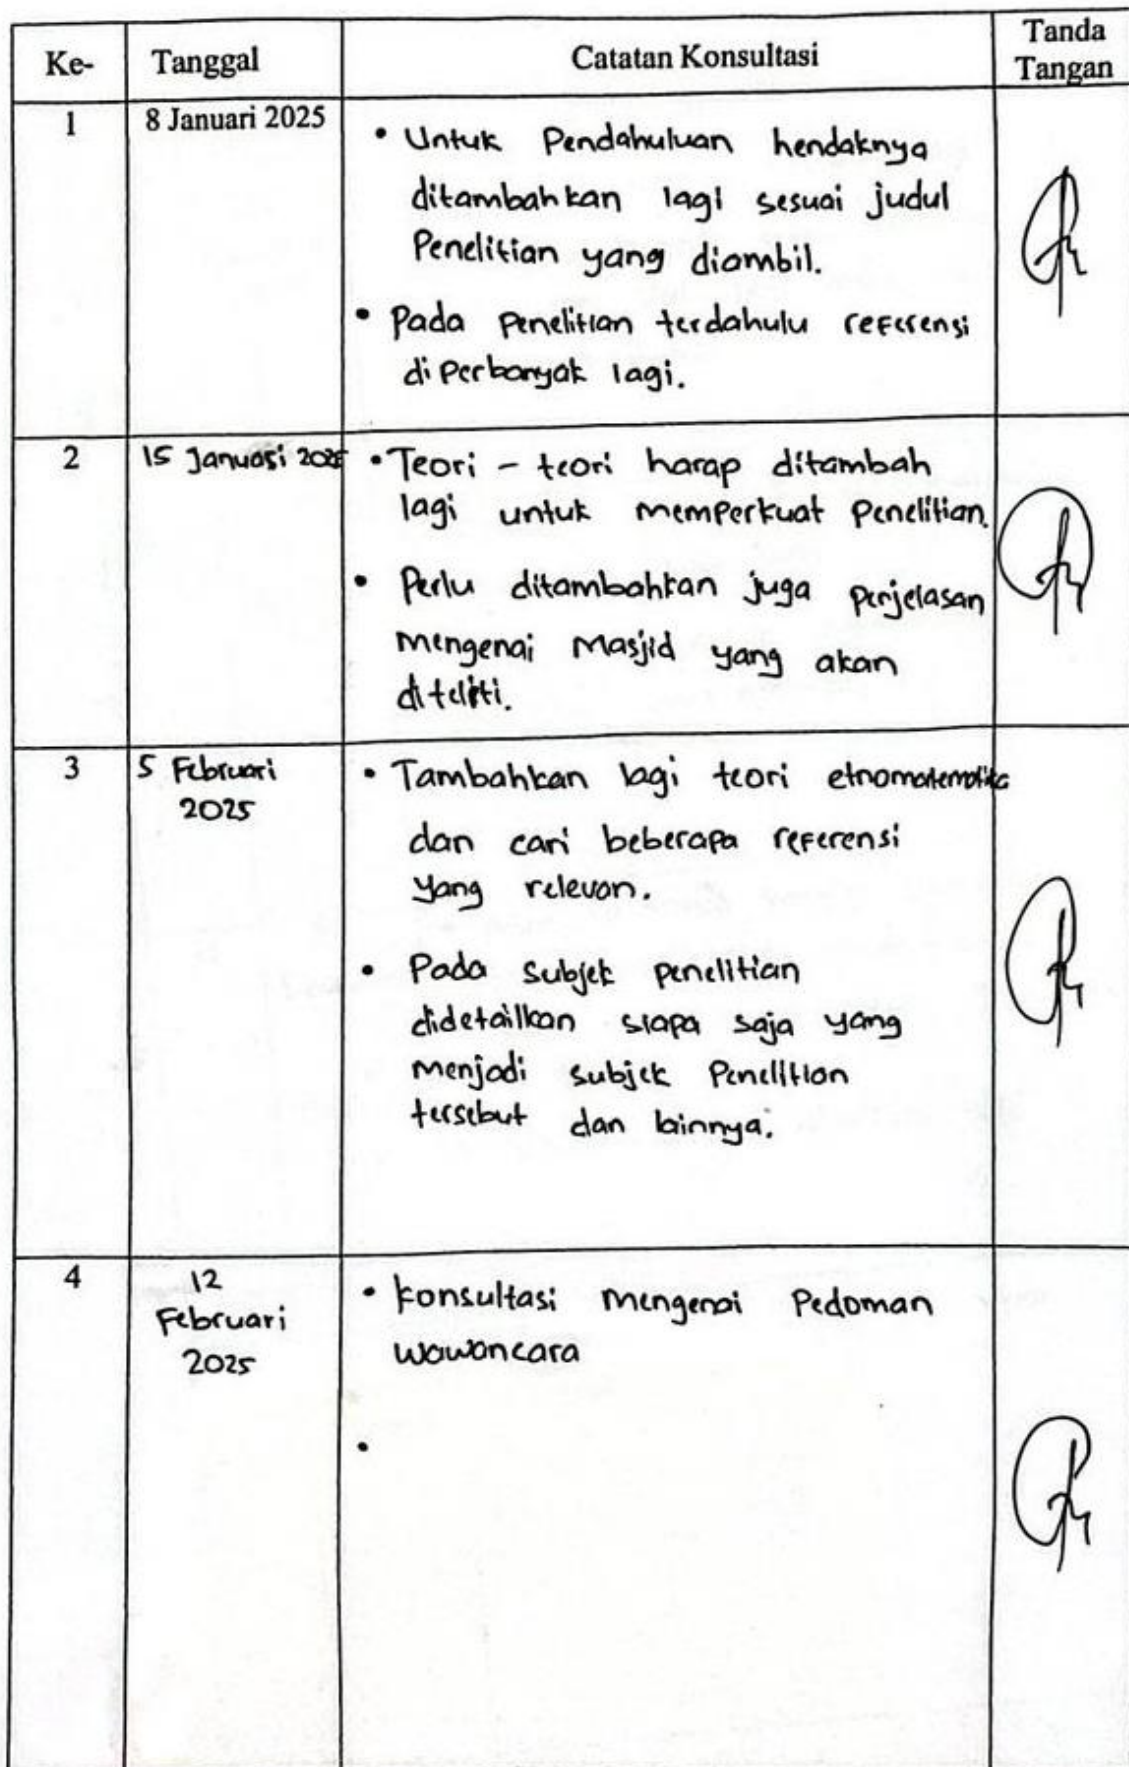 Ke- Tanggal Catatan Konsultasi Tanda Tangan
1 8 Januari 2025
• Untuk Pendahuluan hendaknya
ditambahkan lagi sesuai judul
Penelitian yang diambil.
• Pada Penelitian terdahulu referensi
diperbanyak lagi.
2 15 Januari 2025
• Teori - teori harap ditambah
lagi untuk memperkuat Penelitian.
• Perlu ditambahkan juga penjelasan
mengenai Masjid yang akan
diteliti.
3 5 Februari
2025
• Tambahkan lagi teori etnomatematika
dan cari beberapa referensi
yang relevan.
• Pada Subjek penelitian
didetailkan siapa saja yang
menjadi subjek Penelitian
tersebut dan lainnya.
4 12
Februari
2025
• konsultasi mengenai Pedoman
wawancara
•